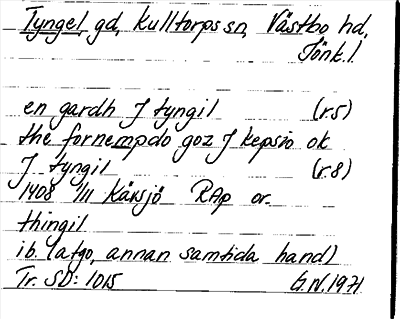 Tyngel, gd, Kulltorps sn, Västbo hd,
Jönk.l.
en gardh J tyngil (r.5)
the fornempdo goz J kepsio ok
J tyngil (r.8)
1408 1/11 Kävsjö RAp or.
thingil
ib. (atgo, annan samtida hand)
Tr. SD: 1015 G.N. 1971